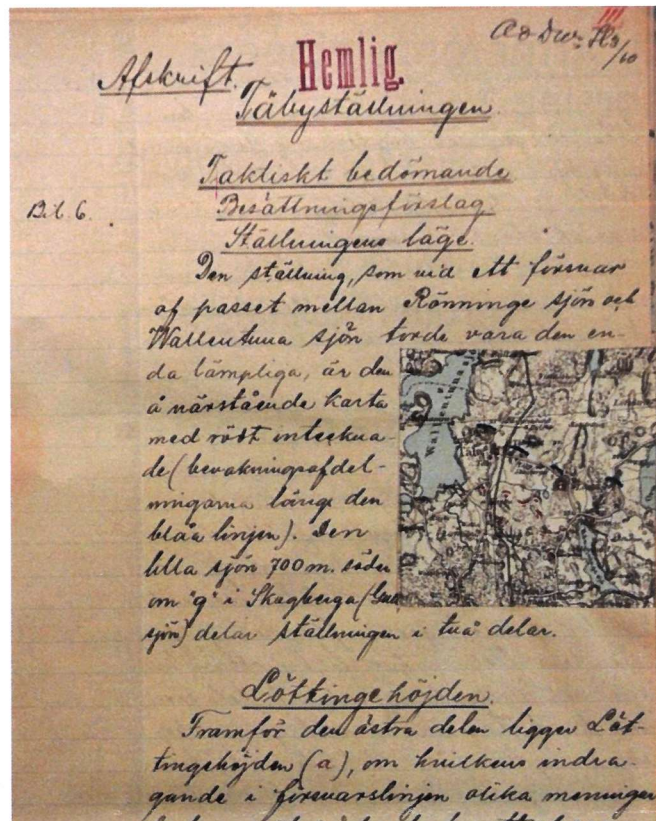 Afskrift.
Hemlig.
Täbyställningen.
Taktiskt bedömande
Besättningsförslag.
Bil. 6.
Ställningens läge.
Den ställning, som vid ett försvar
af passet mellan Rönninge sjön och
Wallentuna sjön torde vara den en-
da lämpliga, är den
å närstående karta
med rödt inteckna-
de (bevakningsafdel-
ningarna längs den
blåa linjen). Den
lilla sjön 700 m. söder
om "g" i Skagberga
sjön) delar ställningen i två delar.
Löttingehöjden.
Framför den östra delen ligger Löt-
tingehöjden (a), om hvilkens indra-
gande i försvarslinjen olika meningar